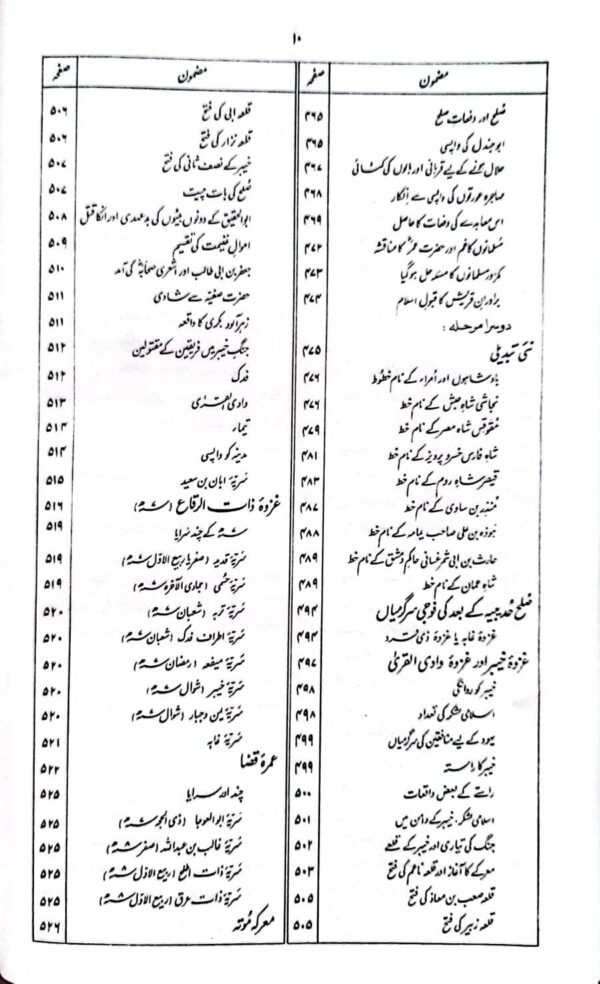 ۱۰
مضمون صفحہ
صُلح اور دفعاتِ صُلح ۴۶۵
ابو جندل کی واپسی ۴۶۵
حلال ہونے کے لیے قربانی اور بالوں کی کٹائی ۴۶۷
مہاجرہ عورتوں کی واپسی سے انکار ۴۶۸
اس معاہدے کی دفعات کا حاصل ۴۶۹
مُسلمانوں کا غم اور حضرت عمرؓ کا مناقشہ ۴۷۲
کمزور مسلمانوں کا مسئلہ حل ہوگیا ۴۷۳
برادرانِ قریش کا قبولِ اسلام ۴۷۴
دوسرا مرحلہ:
نئی تبدیلی ۴۷۵
بادشاہوں اور اُمراء کے نام خطوط ۴۷۶
نجاشی شاہِ حبش کے نام خط ۴۷۶
مُقوقس شاہِ مصر کے نام خط ۴۷۹
شاہِ فارس خسرو پرویز کے نام خط ۴۸۱
قیصر شاہِ روم کے نام خط ۴۸۳
مُنذر بن ساوی کے نام خط ۴۸۷
ہوذہ بن علی صاحبِ یمامہ کے نام خط ۴۸۸
حارث بن ابی شمر غسانی حاکمِ دمشق کے نام خط ۴۸۹
شاہِ عمان کے نام خط ۴۸۹
صُلح حُدیبیہ کے بعد کی فوجی سرگرمیاں ۴۹۴
غزوۂ غابہ یا غزوۂ ذی قرد ۴۹۴
غزوۂ خیبر اور غزوۂ وادی القریٰ ۴۹۷
خیبر کو روانگی ۴۹۸
اسلامی لشکر کی تعداد ۴۹۸
یہود کے لیے منافقین کی سرگرمیاں ۴۹۹
خیبر کا راستہ ۴۹۹
راستے کے بعض واقعات ۵۰۰
اسلامی لشکر، خیبر کے دامن میں ۵۰۱
جنگ کی تیاری اور خیبر کے قلعے ۵۰۲
معرکے کا آغاز اور قلعہ ناعم کی فتح ۵۰۳
قلعہ صعب بن معاذ کی فتح ۵۰۵
قلعہ زبیر کی فتح ۵۰۵
مضمون صفحہ
قلعہ ابی کی فتح ۵۰۶
قلعہ نزار کی فتح ۵۰۶
خیبر کے نصف ثانی کی فتح ۵۰۷
صُلح کی بات چیت ۵۰۷
ابو الحقیق کے دونوں بیٹوں کی بدعہدی اور انکا قتل ۵۰۸
اموالِ غنیمت کی تقسیم ۵۰۹
جعفر بن ابی طالب اور اشعری صحابہؓ کی آمد ۵۱۰
حضرت صفیہؓ سے شادی ۵۱۱
زہر آلود بکری کا واقعہ ۵۱۱
جنگِ خیبر میں فریقین کے مقتولین ۵۱۲
فدک ۵۱۲
وادی القریٰ ۵۱۳
تیماء ۵۱۴
مدینہ کو واپسی ۵۱۴
سَریّہ ابان بن سعید ۵۱۵
غزوۂ ذات الرقاع (۷ھ) ۵۱۶
۷ھ کے چند سَرایا ۵۱۹
سَریّۂ قدید (صفر یا ربیع الاوّل ۷ھ) ۵۱۹
سَریّۂ حسمی (جمادی الآخرہ ۷ھ) ۵۱۹
سَریّۂ تربہ (شعبان ۷ھ) ۵۲۰
سَریّۂ اطراف فدک (شعبان ۷ھ) ۵۲۰
سَریّۂ میفعہ (رمضان ۷ھ) ۵۲۰
سَریّۂ خیبر (شوال ۷ھ) ۵۲۰
سَریّۂ یمن و جبار (شوال ۷ھ) ۵۲۰
سَریّۂ غابہ ۵۲۱
عمرۂ قضا ۵۲۲
چند اور سرایا ۵۲۵
سَریّۂ ابو العوجا (ذی الحجہ ۷ھ) ۵۲۵
سَریّۂ غالب بن عبداللہ (صفر ۸ھ) ۵۲۵
سَریّۂ ذات اطلح (ربیع الاوّل ۸ھ) ۵۲۵
سَریّۂ ذات عرق (ربیع الاوّل ۸ھ) ۵۲۵
معرکہ مُوتہ ۵۲۶